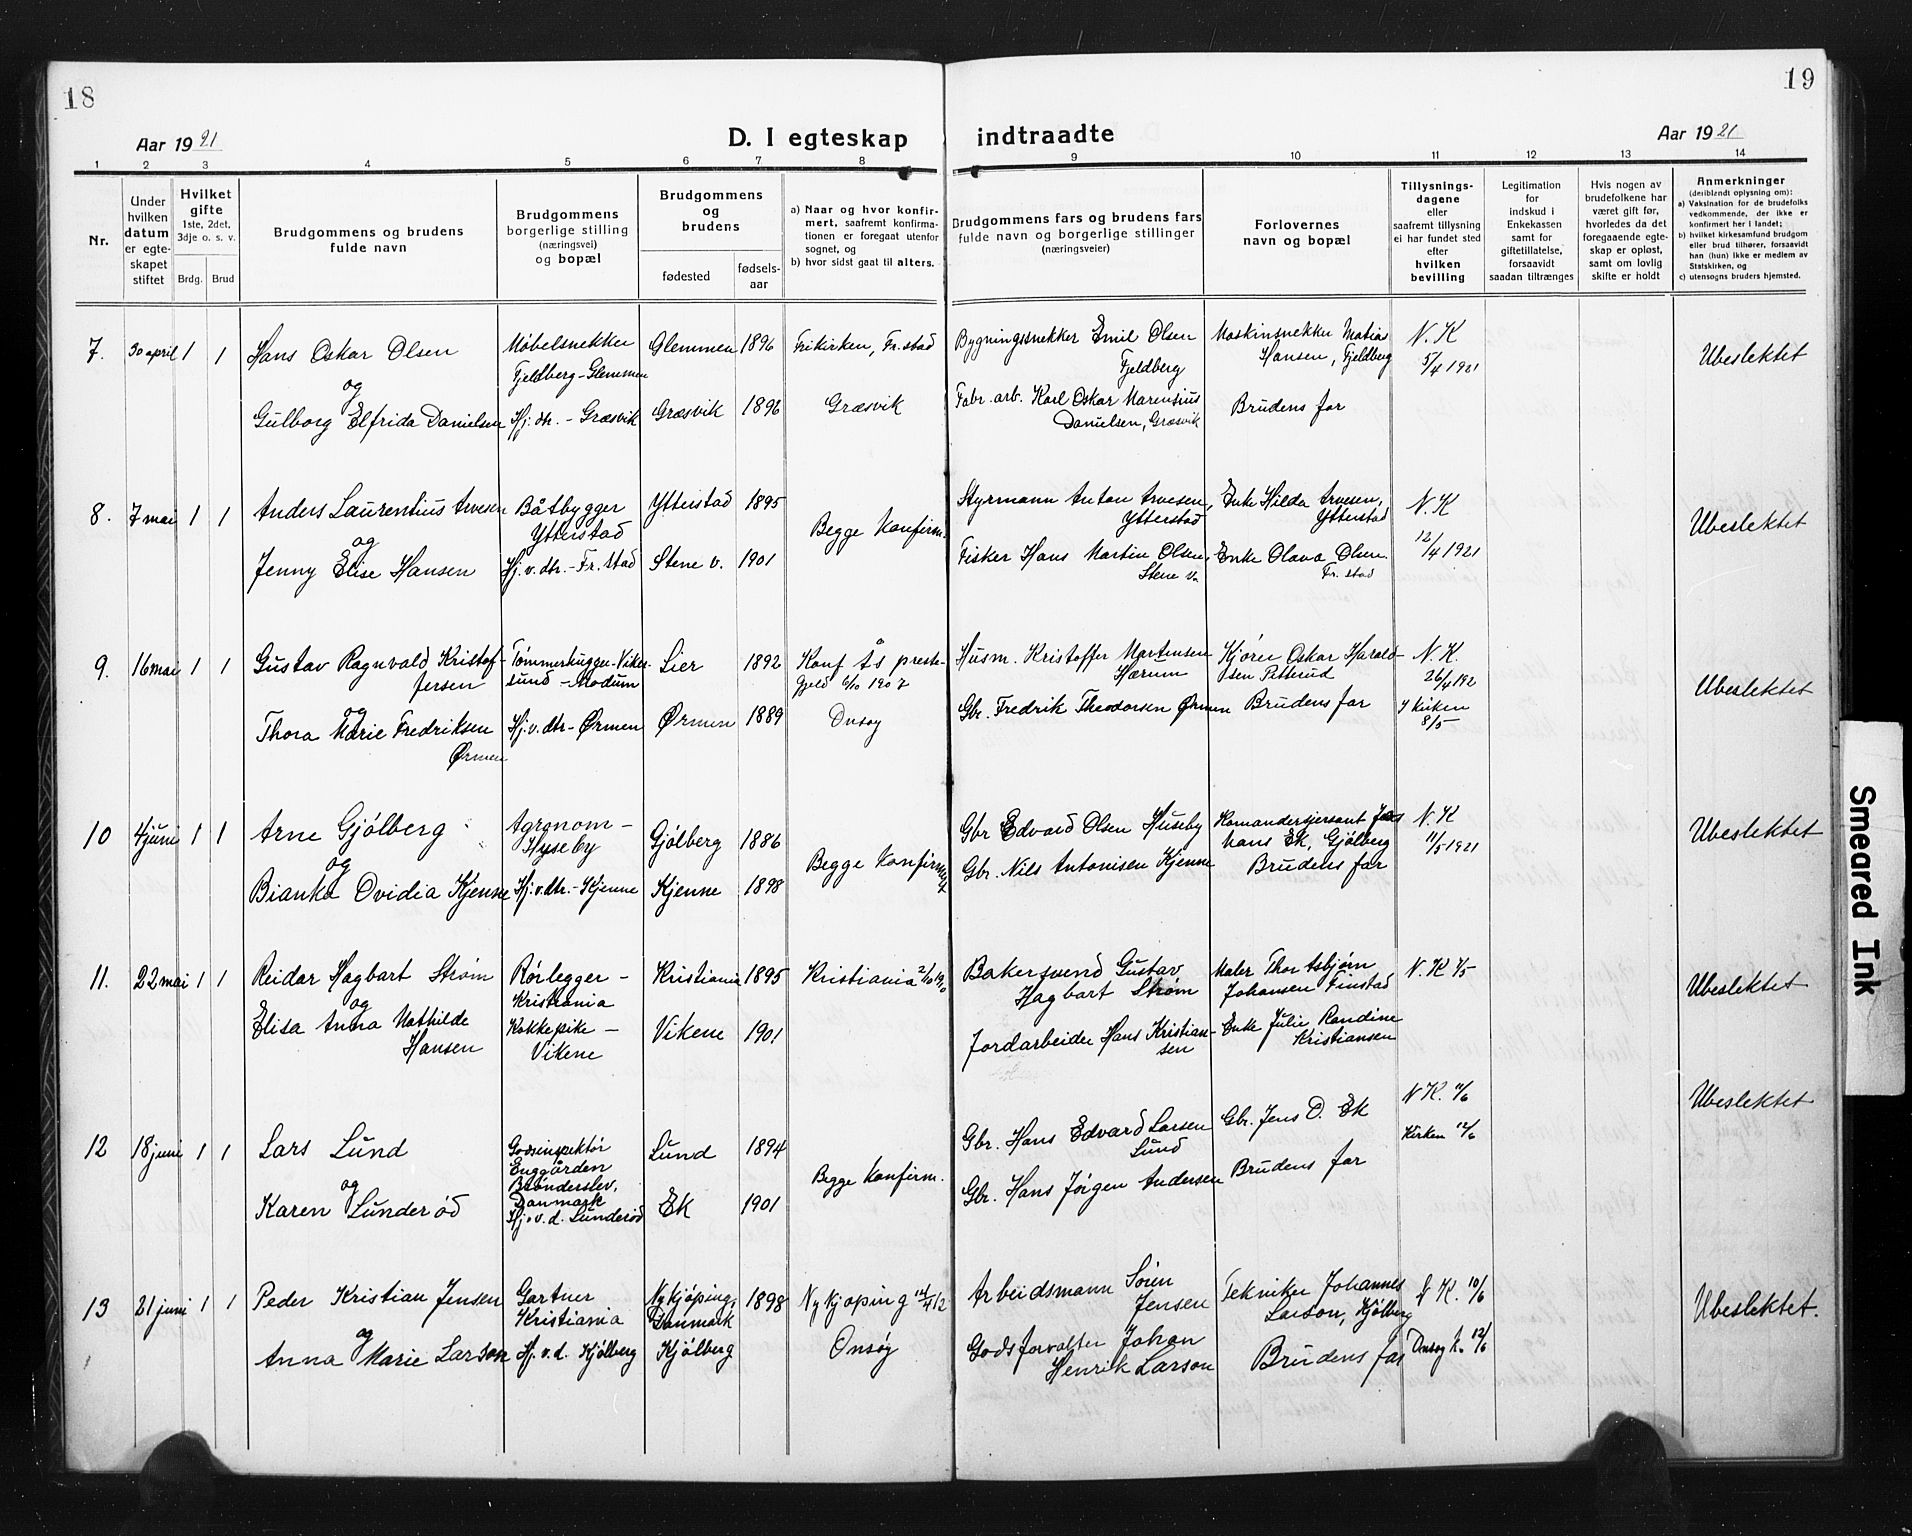 18
19
Aar 1921
D. I egteskap indtraadte
Aar 1921
1 2 3 4 5 6 7 8 9 10 11 12 13 14
Nr.
Under
hvilken
datum
er egte-
skapet
stiftet
Hvilket
gifte
1ste, 2det,
3dje o. s. v.
Brdg. Brud
Brudgommens og brudens
fulde navn
Brudgommens
borgerlige stilling
(næringsvei)
og bopæl
Brudgommens
og
brudens
fødested
fødsels-
aar
a) Naar og hvor konfir-
mert, saafremt konfirma-
tionen er foregaat utenfor
sognet, og
b) hvor sidst gaat til alters.
Brudgommens fars og brudens fars
fulde navn og borgerlige stillinger
(næringsveier)
Forlovernes
navn og bopæl
Tillysnings-
dagene
eller
saafremt tillysning
ei har fundet sted
efter
hvilken
bevilling
Legitimation
for
indskud i
Enkekassen
samt for
giftetillatelse,
forsaavidt
saadan tiltrænges
Hvis nogen av
brudefolkene har
været gift før,
hvorledes da det
foregaaende egte-
skap er opløst,
samt om lovlig
skifte er holdt
Anmerkninger
(deriblandt oplysning om):
a) Vaksination for de brudefolks
vedkommende, der ikke er
konfirmert her i landet;
b) hvilket kirkesamfund brudgom
eller brud tilhører, forsaavidt
han (hun) ikke er medlem av
Statskirken, og
c) utensogns bruders hjemsted.
7. 30 april 1 1 Hans Oskar Olsen
og
Gulborg Elfrida Danielsen
Møbelsnekker
Fjeldberg - Glemmen
Hj. dtr. - Græsvik
Glemmen 1896
Græsvik 1896
Frikirken, Fr.stad
Græsvik
Bygningssnekker Emil Olsen
Fjeldberg
Fabr. arb. Karl Oskar Marensius
Danielsen, Græsvik
Maskinsnekker Matias
Hansen, Fjeldberg
Brudens far
N. K
5/4 1921
Ubeslektet
8. 7 mai 1 1 Anders Laurentius Arvesen
og
Jenny Elise Hansen
Båtbygger
Ytterstad
Hj. v. dtr. - Fr. stad
Ytterstad 1895
Stene v. 1901
Begge Konfirm.
Styrmann Anton Arvesen,
Ytterstad
Fisker Hans Martin Olsen,
Stene v.
Enke Hilda Arvesen,
Ytterstad
Enke Olava Olsen
Fr. stad
N. K
12/4 1921
Ubeslektet
9. 16 mai 1 1 Gustav Ragnvald Kristof-
fersen
og
Thora Marie Fredriksen
Ørmen
Tømmerhugger - Viker-
sund - Modum
Hj. v. dtr - Ørmen
Lier 1892
Ørmen 1889
Konf Ås preste-
gjeld 6/10 1907
Onsøy
Husm. Kristoffer Martinsen
Hærum
Gbr. Fredrik Theodorsen Ørmen
Kjører Oskar Harald-
sen Pitterud
Brudens far
N. K.
26/4 192
I kirken
8/5
Ubeslektet
10 4 juni 1 1 Arne Gjølberg
og
Bianka Ovidia Kjenne
Agrgnom -
Hyseby
Hj. v. dtr. - Kjenne
Gjølberg 1886
Kjenne 1898
Begge Konfirm
Gbr Edvard Olsen Huseby
Gbr. Nils Antonisen Kjenne
Komandersjersant
hans Ek, Gjølberg
Brudens far
N. K
11/5 1921
Ubeslektet
11. 22 mai 1 1 Reidar Hagbart Strøm
og
Elisa Anna Mathilde
Hansen
Rørlegger -
Kristiania
Kokkepike -
Vikene
Kristiania 1895
Vikene 1901
Kristiania 2/10 1910
Bakersvend Gustav
Hagbart Strøm
Jordarbeider Hans Kristian-
sen
Maler Thor Asbjørn
Johansen Finstad
Enke Julie Randine
Kristiansen
N. K 7/5
Ubeslektet
12 18 juni 1 1 Lars Lund
og
Karen Lunderød
Godsinspektør
Enggården
Brønderslev,
Danmark
Hj. v. d. Lunderød
Lund 1894
Ek 1901
Begge Konfirm.
Gbr. Hans Edvard Larsen
Lund
Gbr. Hans Jørgen Andersen
Gbr. Jens O. Ek
Brudens far
N K. 11/6
Kirken 12/6
Ubeslektet
13 21 juni 1 1 Peder Kristian Jensen
og
Anna Marie Larson
Gartner
Kristiania
Hj. v. d. Kjølberg
Nykjøping, 1898
Danmark
Kjølberg
Nykjøping 14/4 12
Onsøy
Arbeidsmann Søren
Jensen
Godsforvalter Johan
Henrik Larson
Tekniker Johannes
Larson, Kjølberg
Brudens far
N K. 10/6
Onsøy k. 12/6
Ubeslektet.
Smeared Ink